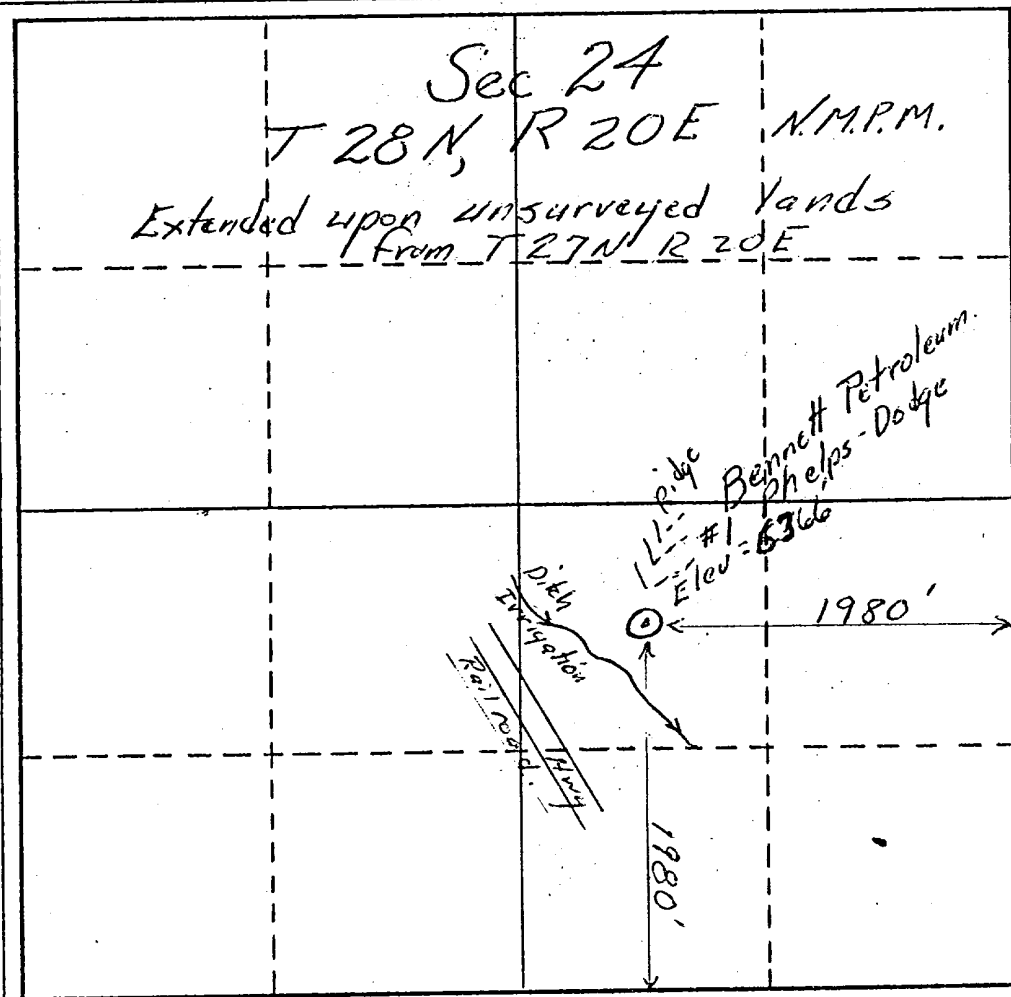 Sec 24
T 28 N, R 20 E N.M.P.M.
Extended upon unsurveyed lands
from T 27 N R 20 E
Ridge
Bennett Petroleum.
#1 Phelps-Dodge
Elev = 6366
Ditch
Irrigation
1980'
Railroad.
Hwy
1980'